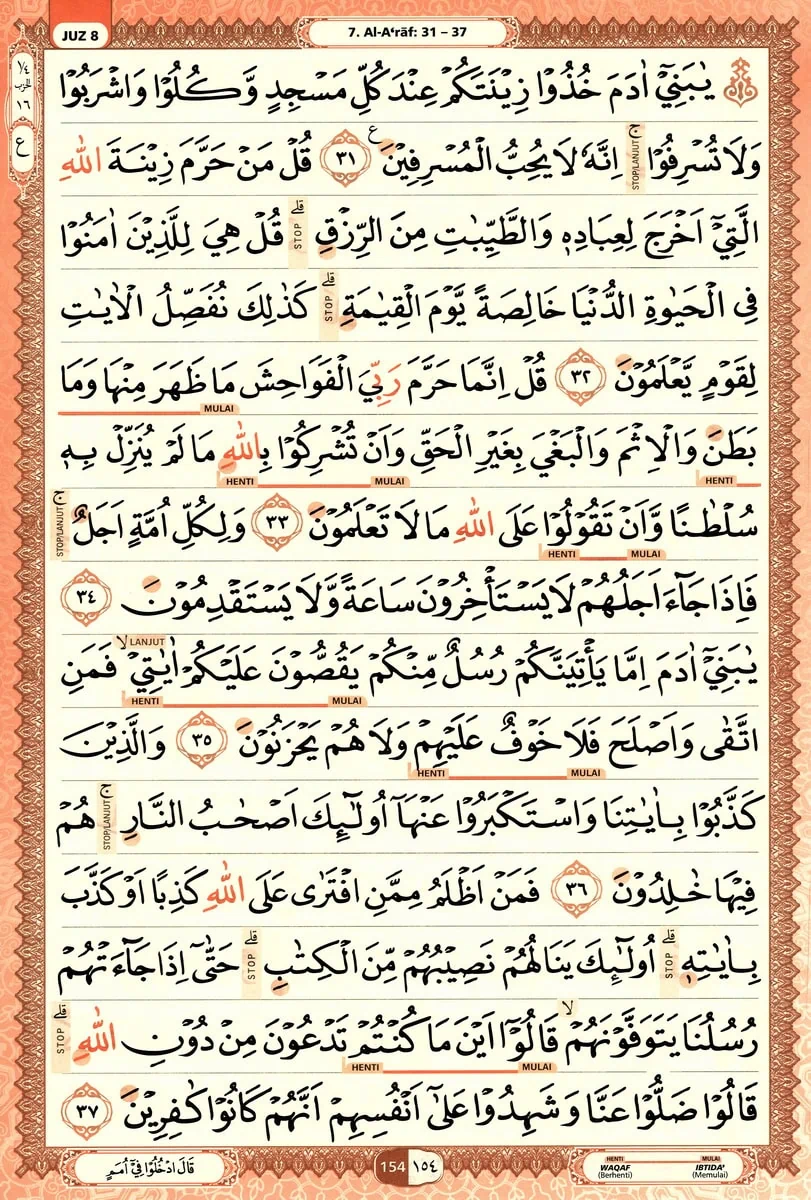 JUZ 8
7. Al-A‘rāf: 31 – 37
١/٤
الحزب
١٦
ع
يٰبَنِيْٓ اٰدَمَ خُذُوْا زِيْنَتَكُمْ عِنْدَ كُلِّ مَسْجِدٍ وَّكُلُوْا وَاشْرَبُوْا
وَلَا تُسْرِفُوْا ۚ STOP/LANJUT اِنَّهٗ لَا يُحِبُّ الْمُسْرِفِيْنَ ࣖ ٣١ قُلْ مَنْ حَرَّمَ زِيْنَةَ اللّٰهِ
الَّتِيْٓ اَخْرَجَ لِعِبَادِهٖ وَالطَّيِّبٰتِ مِنَ الرِّزْقِۗ STOP قُلْ هِيَ لِلَّذِيْنَ اٰمَنُوْا
فِى الْحَيٰوةِ الدُّنْيَا خَالِصَةً يَّوْمَ الْقِيٰمَةِۗ STOP كَذٰلِكَ نُفَصِّلُ الْاٰيٰتِ
لِقَوْمٍ يَّعْلَمُوْنَ ٣٢ قُلْ اِنَّمَا حَرَّمَ رَبِّيَ الْفَوَاحِشَ مَا ظَهَرَ مِنْهَا وَمَا
MULAI
بَطَنَ وَالْاِثْمَ وَالْبَغْيَ بِغَيْرِ الْحَقِّ وَاَنْ تُشْرِكُوْا بِاللّٰهِ مَا لَمْ يُنَزِّلْ بِهٖ
HENTI MULAI HENTI
سُلْطٰنًا وَّاَنْ تَقُوْلُوْا عَلَى اللّٰهِ مَا لَا تَعْلَمُوْنَ ٣٣ وَلِكُلِّ اُمَّةٍ اَجَلٌۚ STOP/LANJUT
MULAI HENTI
فَاِذَا جَاۤءَ اَجَلُهُمْ لَا يَسْتَأْخِرُوْنَ سَاعَةً وَّلَا يَسْتَقْدِمُوْنَ ٣٤
يٰبَنِيْٓ اٰدَمَ اِمَّا يَأْتِيَنَّكُمْ رُسُلٌ مِّنْكُمْ يَقُصُّوْنَ عَلَيْكُمْ اٰيٰتِيْۙ LANJUT فَمَنِ
MULAI HENTI
اتَّقٰى وَاَصْلَحَ فَلَا خَوْفٌ عَلَيْهِمْ وَلَا هُمْ يَحْزَنُوْنَ ٣٥ وَالَّذِيْنَ
MULAI HENTI
كَذَّبُوْا بِاٰيٰتِنَا وَاسْتَكْبَرُوْا عَنْهَآ اُولٰۤىِٕكَ اَصْحٰبُ النَّارِۚ STOP/LANJUT هُمْ
فِيْهَا خٰلِدُوْنَ ٣٦ فَمَنْ اَظْلَمُ مِمَّنِ افْتَرٰى عَلَى اللّٰهِ كَذِبًا اَوْ كَذَّبَ
بِاٰيٰتِهٖۗ STOP اُولٰۤىِٕكَ يَنَالُهُمْ نَصِيْبُهُمْ مِّنَ الْكِتٰبِۗ STOP حَتّٰٓى اِذَا جَاۤءَتْهُمْ
رُسُلُنَا يَتَوَفَّوْنَهُمْۙ قَالُوْٓا اَيْنَ مَا كُنْتُمْ تَدْعُوْنَ مِنْ دُوْنِ اللّٰهِۗ STOP
MULAI HENTI
قَالُوْا ضَلُّوْا عَنَّا وَشَهِدُوْا عَلٰٓى اَنْفُسِهِمْ اَنَّهُمْ كَانُوْا كٰفِرِيْنَ ٣٧
قَالَ ادْخُلُوْا فِيْٓ اُمَمٍ
154 ١٥٤
HENTI MULAI
WAQAF IBTIDA'
(Berhenti) (Memulai)